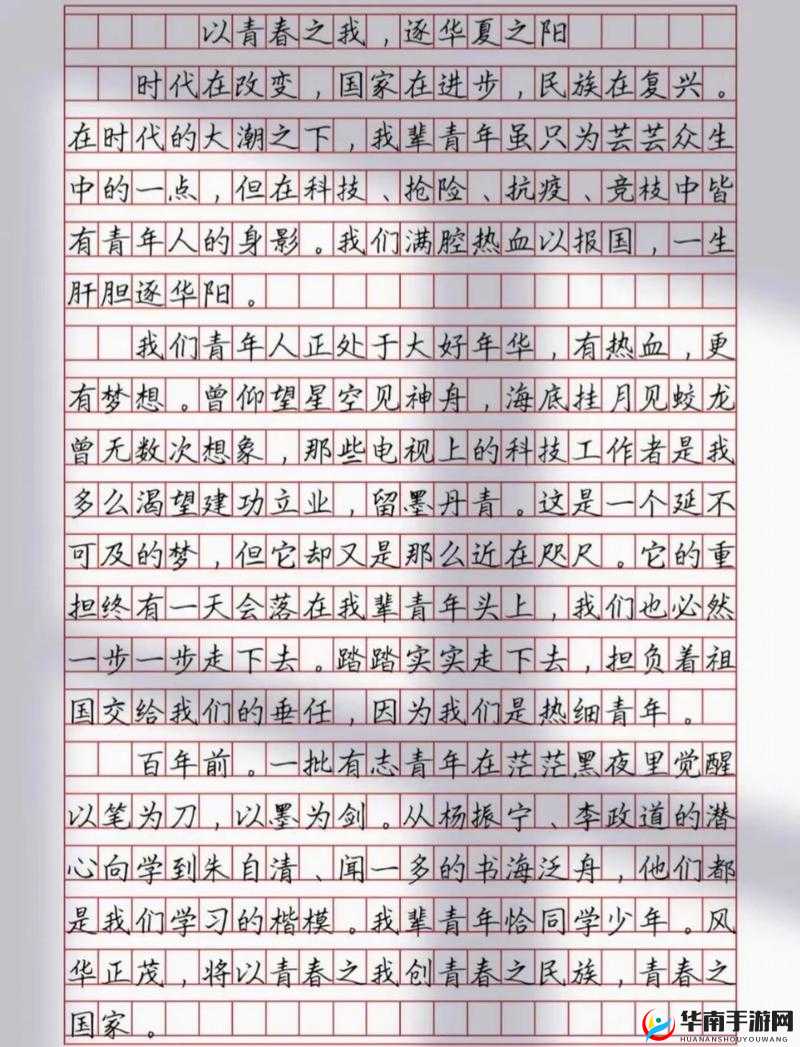 以青春之我，逐华夏之阳
时代在改变，国家在进步，民族在复兴。
在时代的大潮之下，我辈青年虽只为芸芸众生
中的一点，但在科技、抢险、抗疫、竞技中皆
有青年人的身影。我们满腔热血以报国，一生
肝胆逐华阳。
我们青年人正处于大好年华，有热血，更
有梦想。曾仰望星空见神舟，海底挂月见蛟龙
曾无数次想象，那些电视上的科技工作者是我
多么渴望建功立业，留墨丹青。这是一个延不
可及的梦，但它却又是那么近在咫尺。它的重
担终有一天会落在我辈青年头上，我们也必然
一步一步走下去。踏踏实实走下去，担负着祖
国交给我们的垂任，因为我们是热细青年。
百年前。一批有志青年在茫茫黑夜里觉醒
以笔为刀，以墨为剑。从杨振宁、李政道的潜
心向学到朱自清、闻一多的书海泛舟，他们都
是我们学习的楷模。我辈青年恰同学少年。风
华正茂，将以青春之我创青春之民族，青春之
国家。
华南手游网
HUANANSHOUYOUWANG